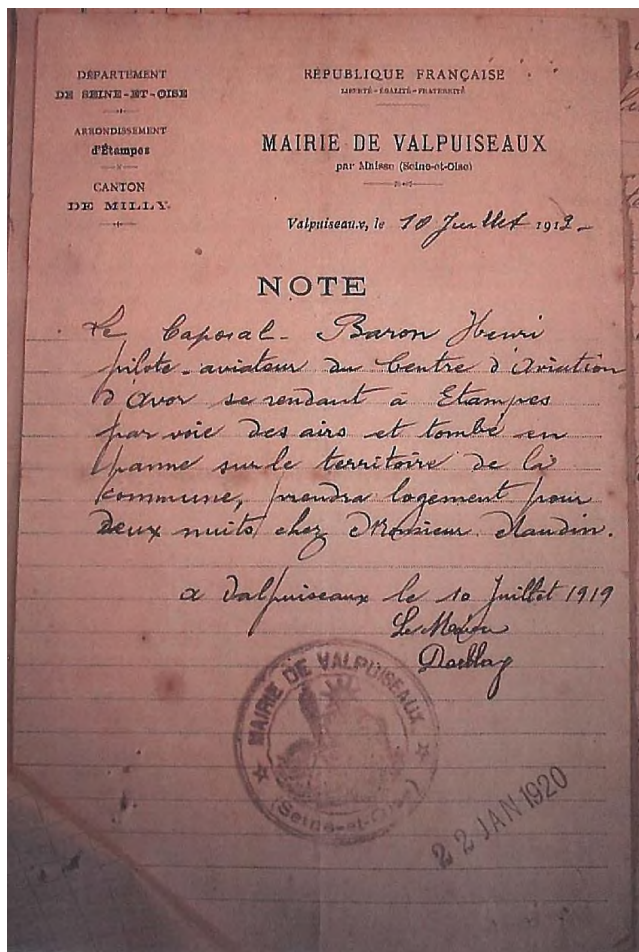 DÉPARTEMENT
DE SEINE-ET-OISE
ARRONDISSEMENT
d'Étampes
CANTON
DE MILLY.
RÉPUBLIQUE FRANÇAISE
LIBERTÉ-ÉGALITÉ-FRATERNITÉ
MAIRIE DE VALPUISEAUX
par Maisse (Seine-et-Oise)
Valpuiseaux, le 10 Juillet 1919-
NOTE
Le Caporal- Baron Henri
pilote-aviateur du Centre d'Aviation
d'Avor se rendant à Etampes
par voie des airs et tombé en
panne sur le territoire de la
commune, prendra logement pour
deux nuits chez Monsieur
a Valpuiseaux le 10 Juillet 1919
Le Maire
MAIRIE DE VALPUISEAUX
(Seine-et-Oise)
22 JAN 1920